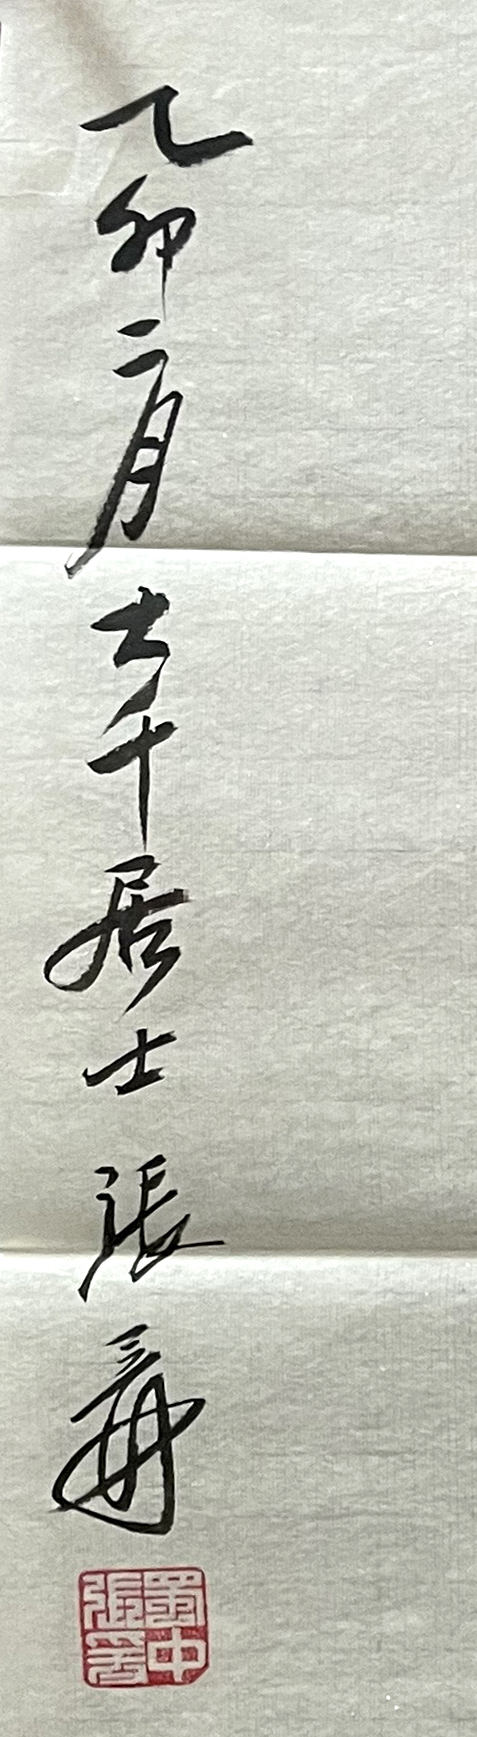 乙卯二月大千居士張爰
蜀中
張爰